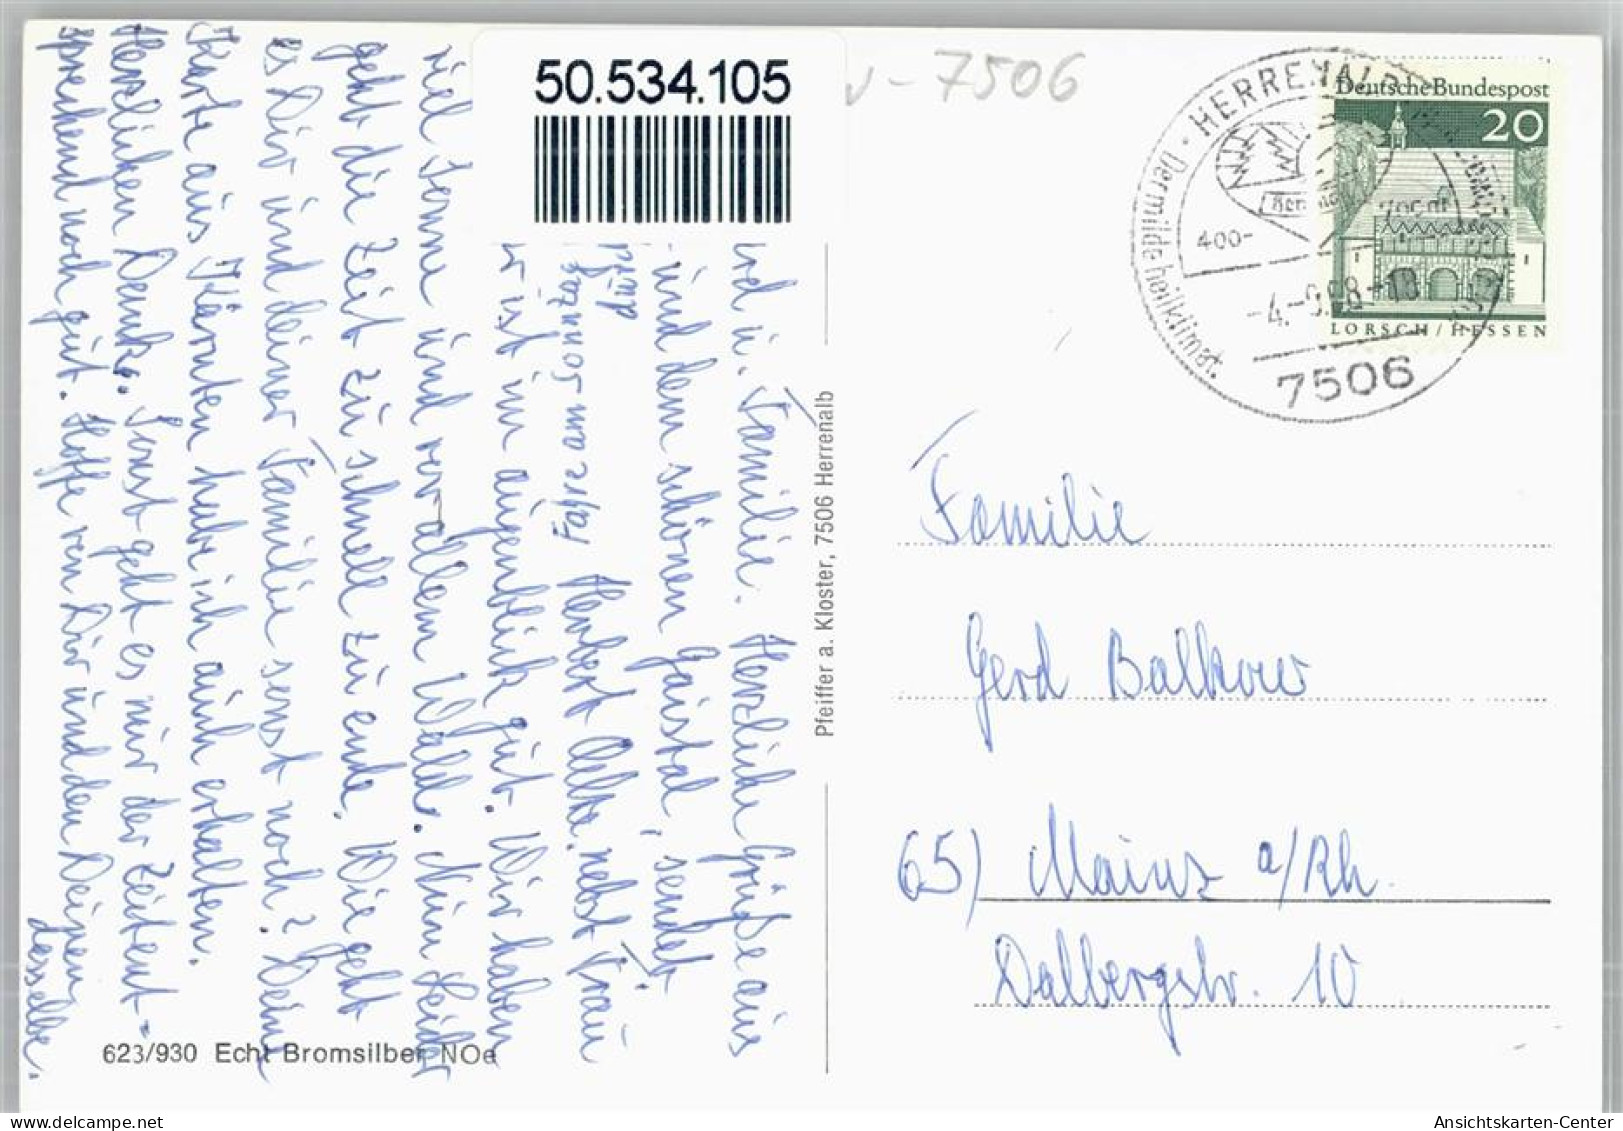 50.534.105
v - 7506
HERRENALB
Der milde heilklimat.
400-
-4.-9.68-18
7506
Deutsche Bundespost
20
LORSCH / HESSEN
Familie
Gerd Balkow
65) Mainz a/Rh.
Dalbergstr. 10
Pfeiffer a. Kloster, 7506 Herrenalb
erd u. Familie. Herzliche Grüße aus
und dem schönen Gaistal, sendet
durch
Fahre am Sonntag
Herbert nebst Frau
er ist im augenblick gut. Wir haben
viel Sonne und vor allem Wald. Nun Leider
geht die Zeit zu schnell zu ende. Wie geht
es Dir und deiner Familie sonst noch? Deine
Karte aus Kärnten habe ich auch erhalten.
Herzlichen Dank. Sonst geht es mir der Zeitent=
sprechend noch gut. Hoffe von Dir und den Deinen
dasselbe.
623/930 Echt Bromsilber NOe
Ansichtskarten-Center